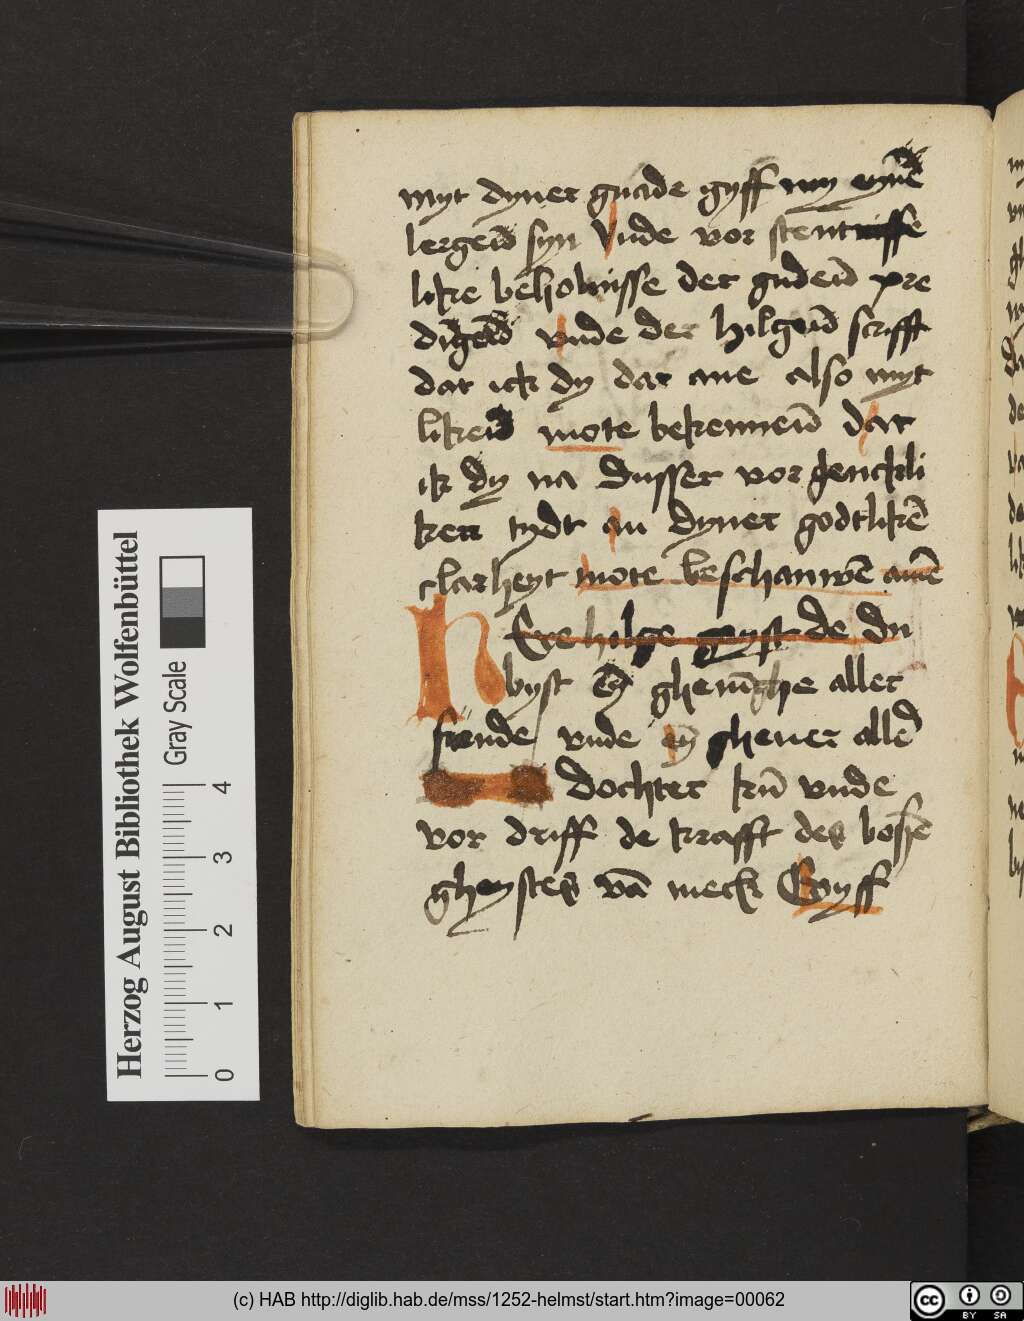 myt dyner gnade gyff my eynē
lergeīd syn vnde vor stent
like beholnisse der gudeīd pre
digeīd vnde der hilgeīd scrifft
dat ick dy dar ane also myt
likeīd mote bekenneīd dat
ik dy na dusser vor genckli
ken tydt an dyner godtlikē
clarheyt mote beschauwē amē
Here hilge gyst de du
byst eȳ ghenīghe aller
sunde vnde eȳ gheuer allē
dochter kū vnde
vor driff de krafft des boszē
gheystes vā meck Gyff
Herzog August Bibliothek Wolfenbüttel
Gray Scale
0 1 2 3 4
(c) HAB http://diglib.hab.de/mss/1252-helmst/start.htm?image=00062
cc BY SA